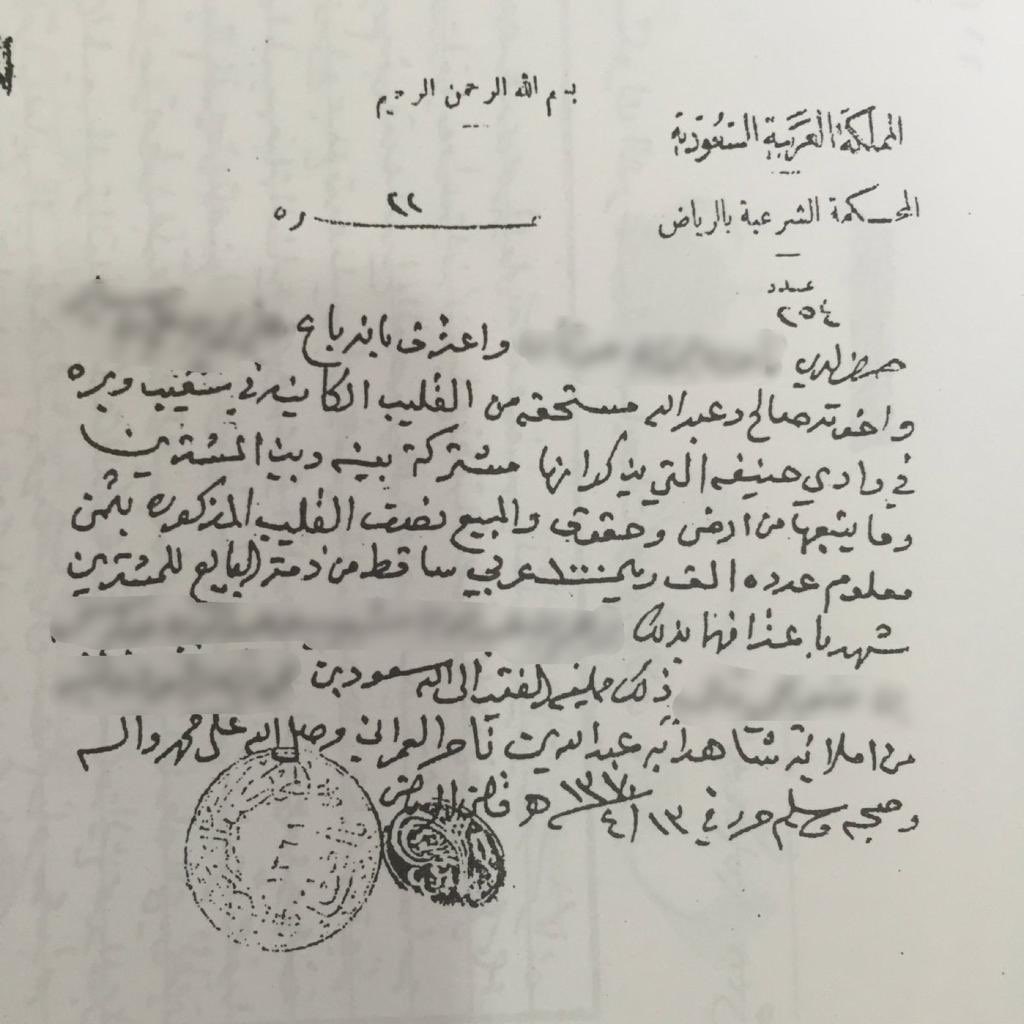 بسم الله الرحمن الرحيم
المملكة العربية السعودية
المحكمة الشرعية بالرياض
٢٢
عدد
٢٥٤
حضر لدي
واعترف بانه باع
واخوته صالح وعبدالله مستحقه من القليب الكاينه في وبره
في وادي حنيفه التي يذكر انها مشتركة بينه وبين المشترين
وما يتبعها من ارض وحقوق والمبيع نصف القليب المذكوره بثمن
معلوم عدده الف ريال ١٠٠٠ عربي ساقط من ذمة البايع للمشترين
شهد باعترافهما بذلك
ذلك الفقير الى الله سعود بن
من املائه شاهدا به عبدالله بن ناصر العمراني وصلى الله على محمد واله
وصحبه وسلم حرر في ١٣/٤/١٣٧٠ هـ قاضي الرياض